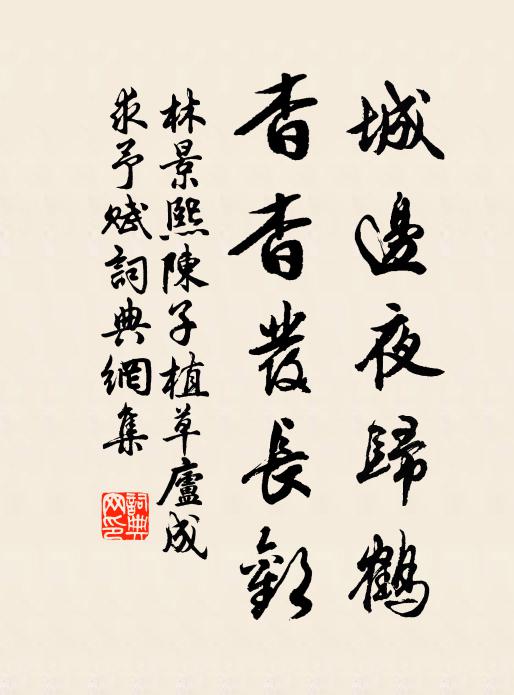 城邊夜歸鶴
杳杳發長歎
林景熙陳子植草廬成
求予賦詞典網集
詞典
网印